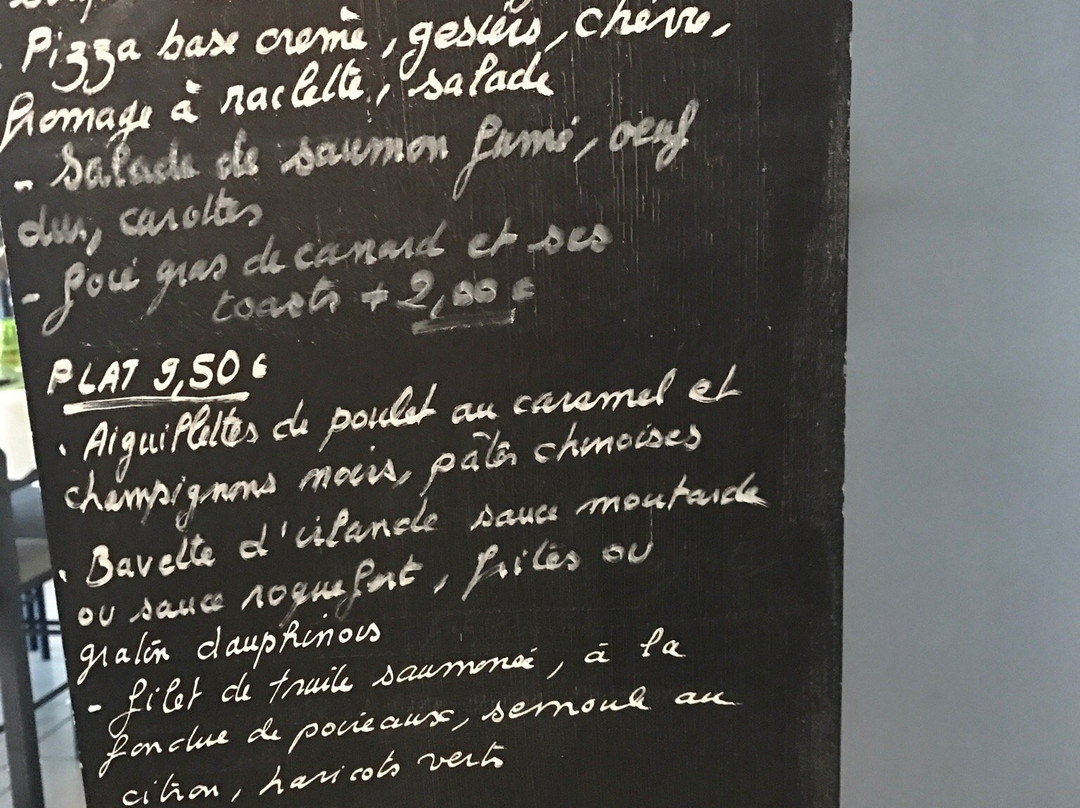 Pizza base crème, gesiers, chèvre,
fromage à raclette, salade
- Salade de saumon fumé, oeuf
dur, carottes
- foie gras de canard et ses
toasts + 2,00 €
PLAT 9,50 €
. Aiguillettes de poulet au caramel et
champignons noirs, pâtes chinoises
. Bavette d'irlande sauce moutarde
ou sauce roquefort, frites ou
gratin dauphinois
- filet de truite saumonée, à la
fondue de poireaux, semoule au
citron, haricots verts